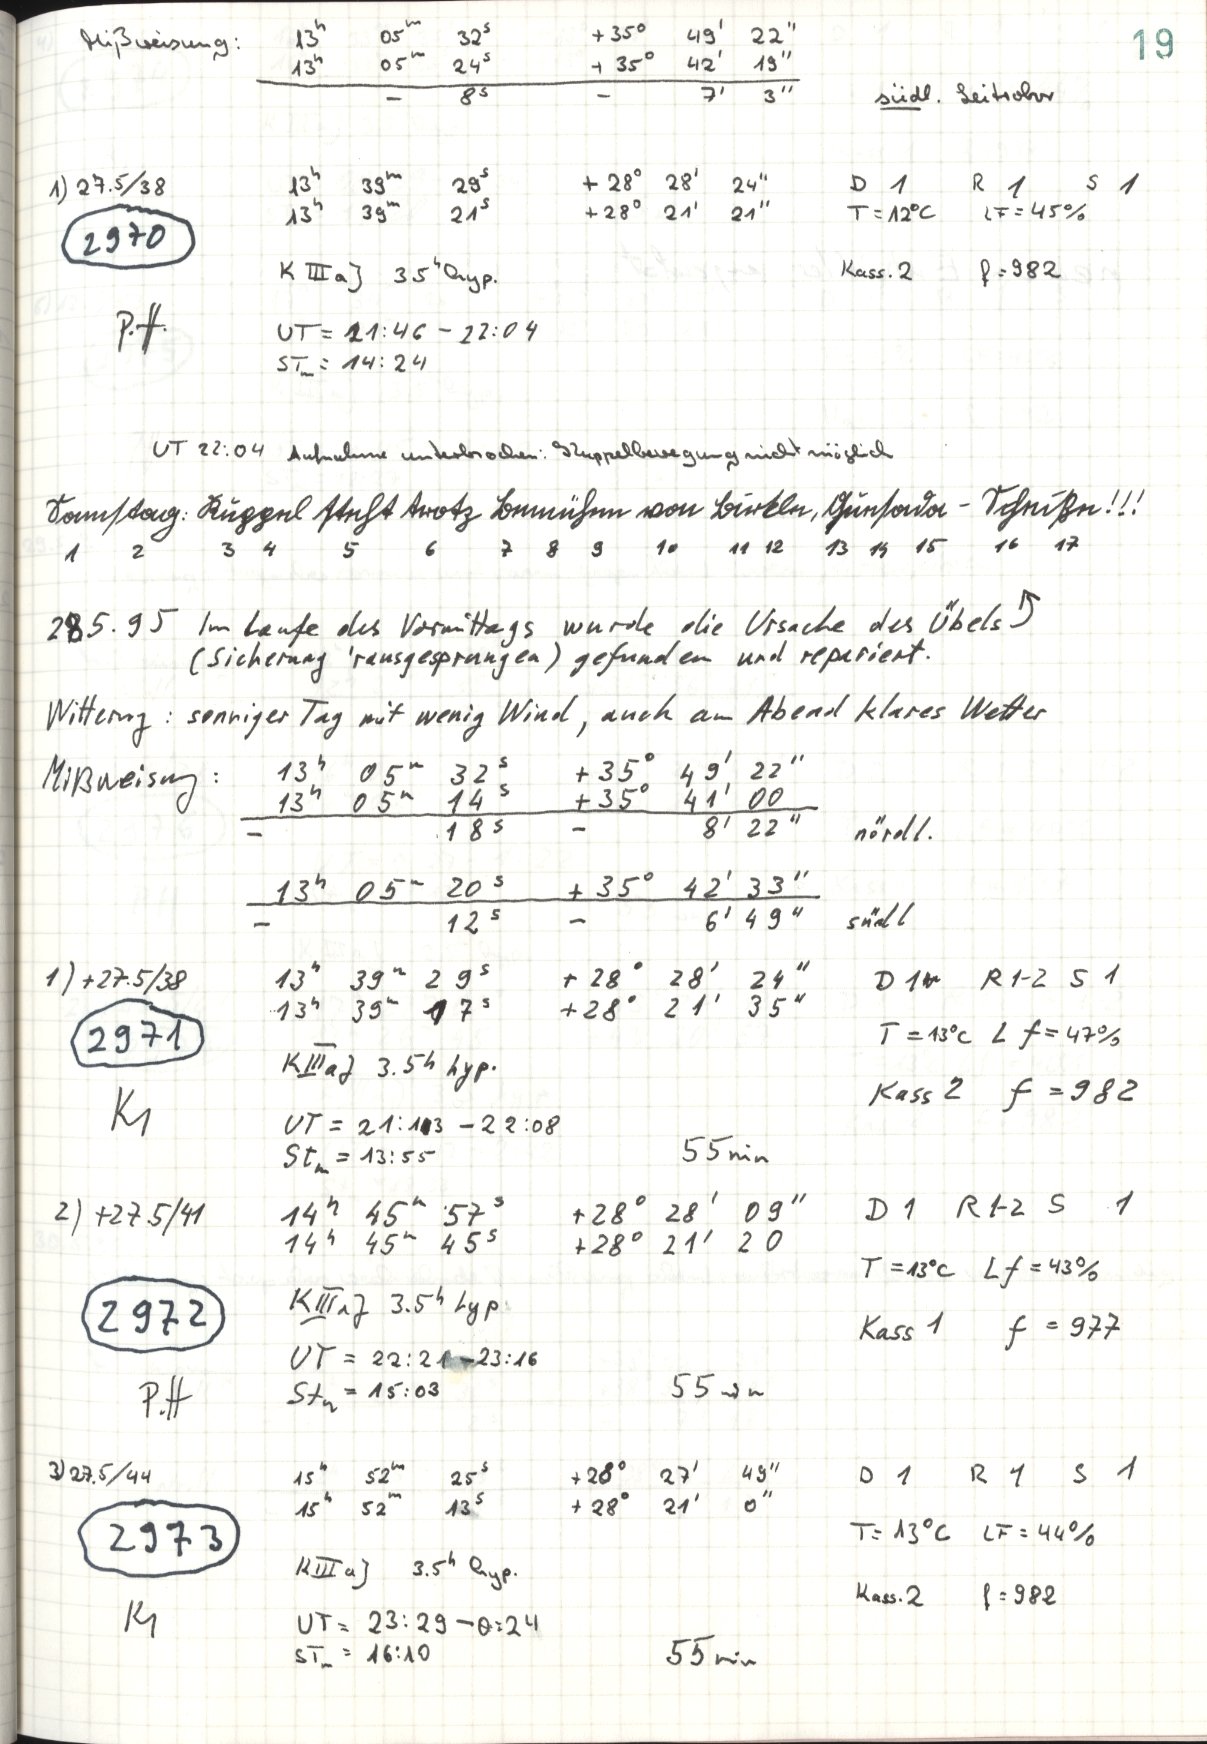 19
Mißweisung: 13h 05m 32s +35° 49' 22"
13h 05m 24s +35° 42' 19"
- 8s - 7' 3" südl. Leitrohr
1) 27.5/38 13h 39m 29s +28° 28' 24" D 1 R 1 S 1
13h 39m 21s +28° 21' 21" T = 12°C LF = 45%
2970
K III aJ 3.5h hyp. Kass. 2 f = 982
P.H.
UT = 21:46 - 22:04
STm = 14:24
UT 22:04 Aufnahme unterbrochen: Kuppelbewegung nicht möglich
Samstag: Kuppel steht trotz Bemühen von - Scheiße!!!
1 2 3 4 5 6 7 8 9 10 11 12 13 14 15 16 17
28.5.95 Im Laufe des Vormittags wurde die Ursache des Übels
(Sicherung 'rausgesprungen) gefunden und repariert.
Witterung: sonniger Tag mit wenig Wind, auch am Abend klares Wetter
Mißweisung: 13h 05m 32s +35° 49' 22"
13h 05m 14s +35° 41' 00
- 18s - 8' 22" nördl.
13h 05m 20s +35° 42' 33"
- 12s - 6' 49" südl
1) +27.5/38 13h 39m 29s +28° 28' 24" D 1 R 1-2 S 1
13h 39m 17s +28° 21' 35" T = 13°C Lf = 47%
2971
K III aJ 3.5h hyp. Kass 2 f = 982
UT = 21:13 - 22:08
Stm = 13:55 55 min
2) +27.5/41 14h 45m 57s +28° 28' 09" D 1 R 1-2 S 1
14h 45m 45s +28° 21' 20 T = 13°C Lf = 43%
2972
K III aJ 3.5h hyp. Kass 1 f = 977
UT = 22:21 - 23:16
P.H
Stm = 15:03 55 min
3) 27.5/44 15h 52m 25s +28° 27' 49" D 1 R 1 S 1
15h 52m 13s +28° 21' 0" T = 13°C LF = 44%
2973
K III aJ 3.5h hyp. Kass. 2 f = 982
UT = 23:29 - 0:24
STm = 16:10 55 min